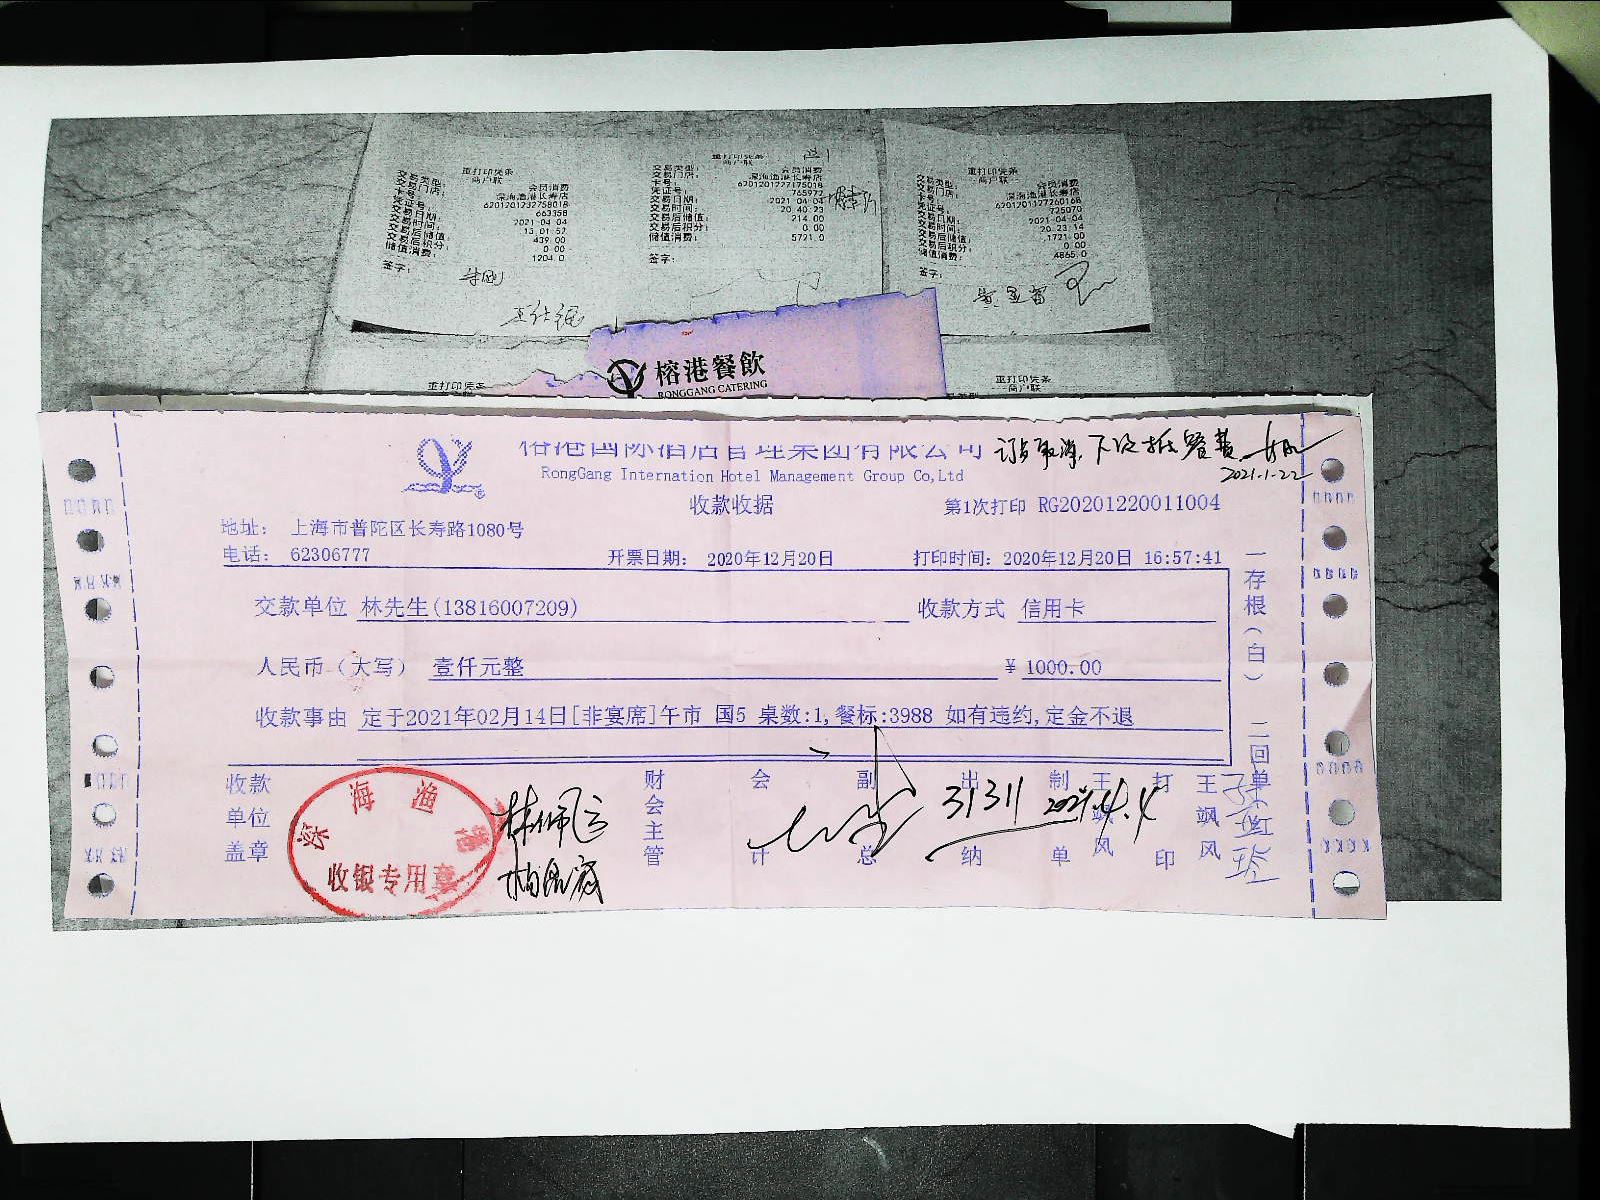 重打印凭条
商户联
交易类型: 会员消费
交易门店: 深海渔港长寿店
卡号: 6201201232758018
凭证号: 663358
交易日期: 2021-04-04
交易时间: 13:01:52
交易后储值: 439.00
交易后积分: 0.00
储值消费: 1204.0
签字:
重打印凭条
商户联
交易类型: 会员消费
交易门店: 深海渔港长寿店
卡号: 6201201227175018
凭证号: 765972
交易日期: 2021-04-04
交易时间: 20:40:23
交易后储值: 214.00
交易后积分: 0.00
储值消费: 5721.0
签字:
重打印凭条
商户联
交易类型: 会员消费
交易门店: 深海渔港长寿店
卡号: 6201201127260168
凭证号: 725070
交易日期: 2021-04-04
交易时间: 20:23:14
交易后储值: 1721.00
交易后积分: 0.00
储值消费: 4865.0
签字:
重打印凭条
商户联
榕港餐飲
RONGGANG CATERING
重打印凭条
商户联
榕港国际酒店管理集团有限公司
RongGang International Hotel Management Group Co,Ltd
2021.1.22
收款收据
第1次打印 RG20201220011004
地址: 上海市普陀区长寿路1080号
电话: 62306777
开票日期: 2020年12月20日
打印时间: 2020年12月20日 16:57:41
交款单位 林先生(13816007209)
收款方式 信用卡
人民币(大写) 壹仟元整
¥ 1000.00
收款事由 定于2021年02月14日[非宴席]午市 国5 桌数:1,餐标:3988 如有违约,定金不退
一存根(白) 二回单
收款单位盖章
深海渔港
收银专用章
财会主管
会计
副总
出纳
制单
王飒风
打印
王飒风
31311 2021.4.4